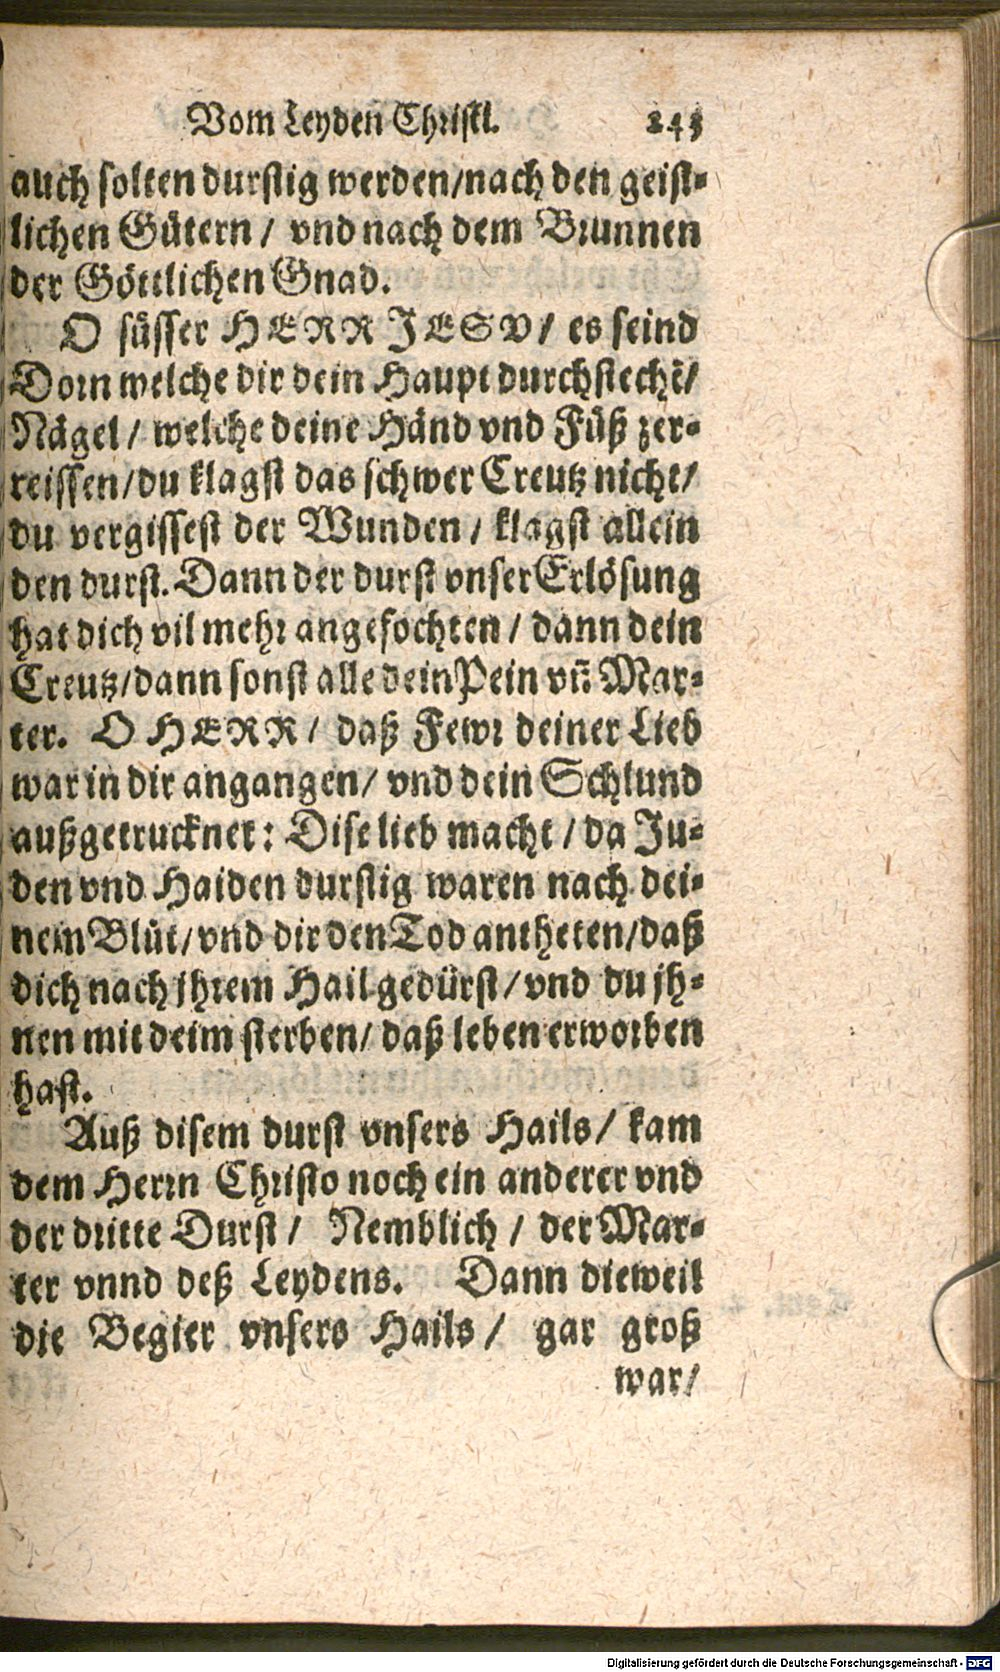 Vom Leyden Christi. 243
auch solten durstig werden/nach den geist-
lichen Gütern / vnd nach dem Brunnen
der Göttlichen Gnad.
O süsser HERR JESV/ es seind
Dorn welche dir dein Haupt durchstechẽ/
Nägel / welche deine Händ vnd Füß zer-
reissen/du klagst das schwer Creutz nicht/
du vergissest der Wunden / klagst allein
den durst. Dann der durst vnser Erlösung
hat dich vil mehr angefochten / dann dein
Creutz/dann sonst alle dein Pein vñ Mar-
ter. O HERR/ daß Fewr deiner Lieb
war in dir angangen/ vnd dein Schlund
außgetrucknet: Dise lieb macht / da Ju-
den vnd Haiden durstig waren nach dei-
nem Blůt/vnd dir den Tod antheten/daß
dich nach jhrem Hail gedürst/vnd du jh-
nen mit deim sterben/ daß leben erworben
hast.
Auß disem durst vnsers Hails/ kam
dem Herrn Christo noch ein anderer vnd
der dritte Durst / Nemblich / der Mar-
ter vnnd deß Leydens. Dann dieweil
die Begier vnsers Hails / gar groß
war/
Digitalisierung gefördert durch die Deutsche Forschungsgemeinschaft - DFG